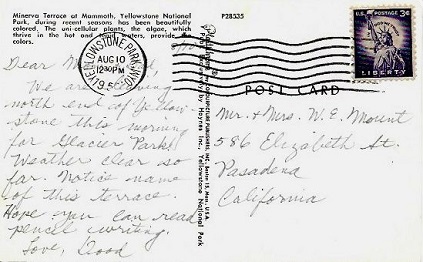 Minerva Terrace at Mammoth, Yellowstone National
Park, during recent seasons has been beautifully
colored. The uni-cellular plants, the algae, which
thrive in the hot and waters, provide the
colors.
P28535
YELLOWSTONE PARK
AUG 10
12 30 PM
U.S. POSTAGE 3¢
LIBERTY
POST CARD
Dear
We are
north end of Yellow-
stone this morning
for Glacier Park.
Weather clear so
far. Notice name
of this terrace.
Hope you can read
pencil writing.
Love,
Mr. & Mrs. W. E. Mount
586 Elizabeth St.
Pasadena
California
Inc., Yellowstone National Park